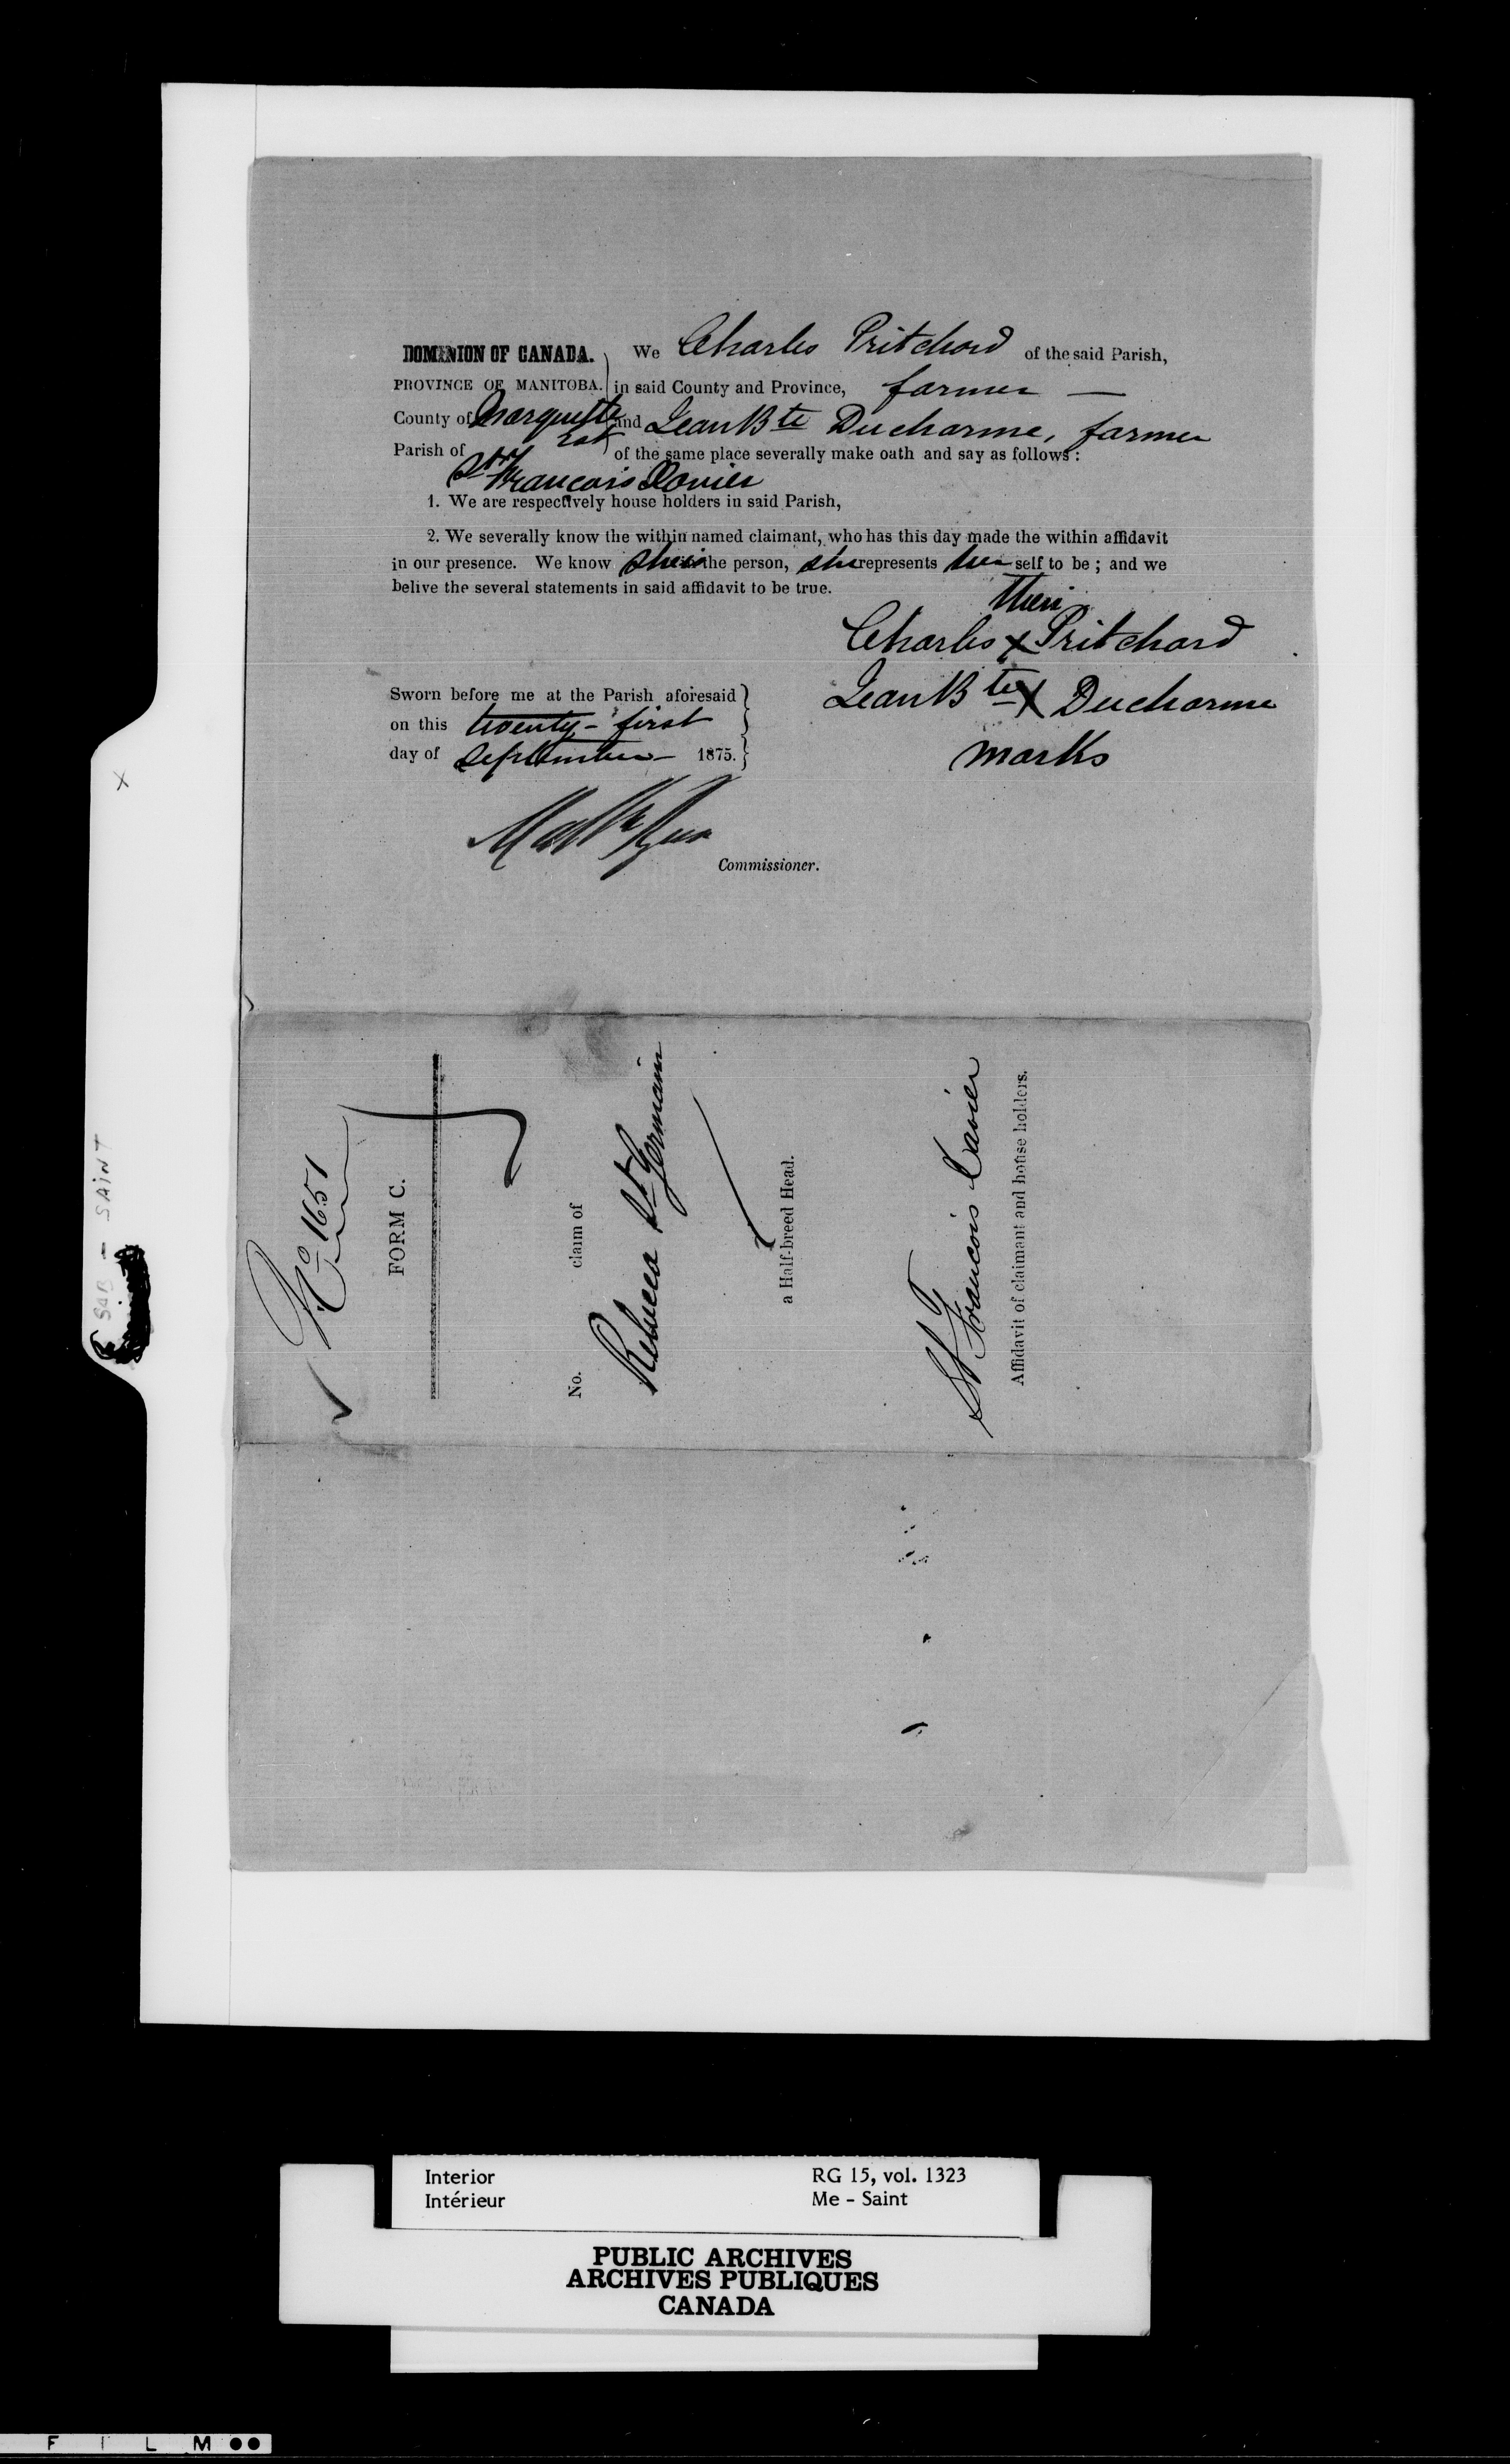 DOMINION OF CANADA. We Charles Pritchard of the said Parish,
PROVINCE OF MANITOBA. in said County and Province, farmer —
County of Marquette Est and Jean Bte Ducharme, farmer
Parish of St François Xavier of the same place severally make oath and say as follows :
1. We are respectively house holders in said Parish,
2. We severally know the within named claimant, who has this day made the within affidavit
in our presence. We know she is the person, she represents her self to be ; and we
belive the several statements in said affidavit to be true.
Their
Charles X Pritchard
Jean Bte X Ducharme
marks
Sworn before me at the Parish aforesaid
on this twenty-first
day of september 1875.
Commissioner.
No 1651
FORM C.
No. claim of
Rebecca St Germain
a Half-breed Head.
St Francois Xavier
Affidavit of claimant and house holders.
SAB - SAINT
Interior RG 15, vol. 1323
Intérieur Me - Saint
PUBLIC ARCHIVES
ARCHIVES PUBLIQUES
CANADA
F I L M